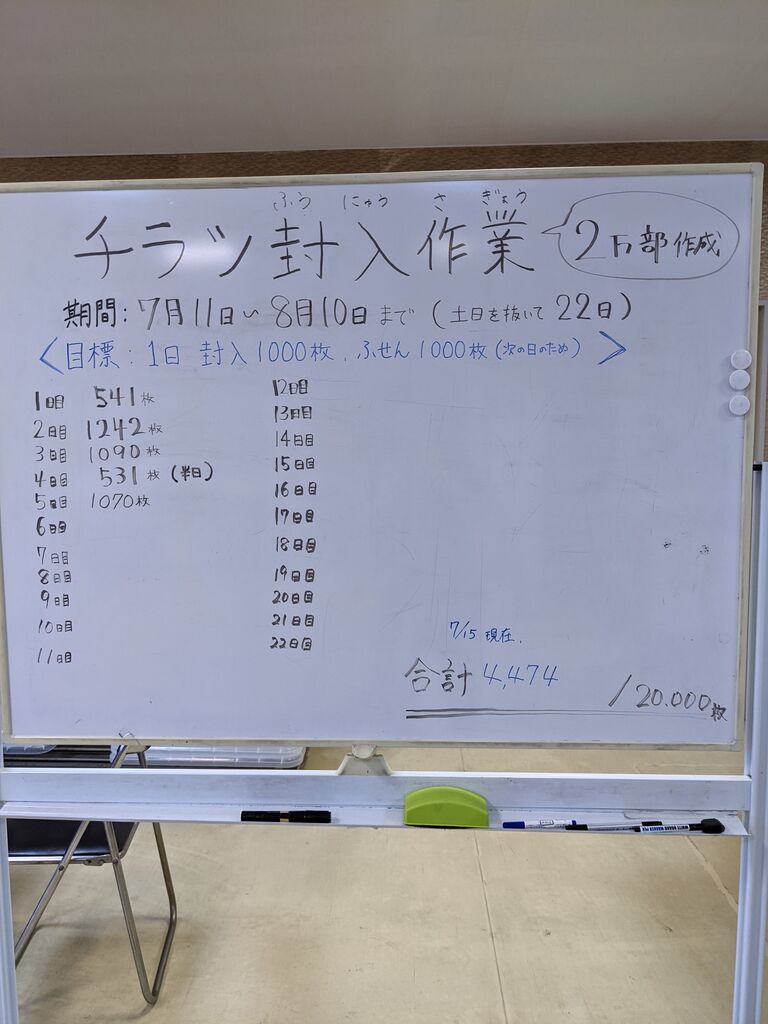 ふう にゅう さ ぎょう
チラシ封入作業 2万部作成
期間: 7月11日〜8月10日まで (土日を抜いて22日)
<目標: 1日 封入1000枚、ふせん1000枚(次の日のため)>
1日目 541枚
2日目 1242枚
3日目 1090枚
4日目 531枚 (半日)
5日目 1070枚
6日目
7日目
8日目
9日目
10日目
11日目
12日目
13日目
14日目
15日目
16日目
17日目
18日目
19日目
20日目
21日目
22日目
7/15 現在.
合計 4,474
/20.000枚
WHITE BOARD MARKER PEN